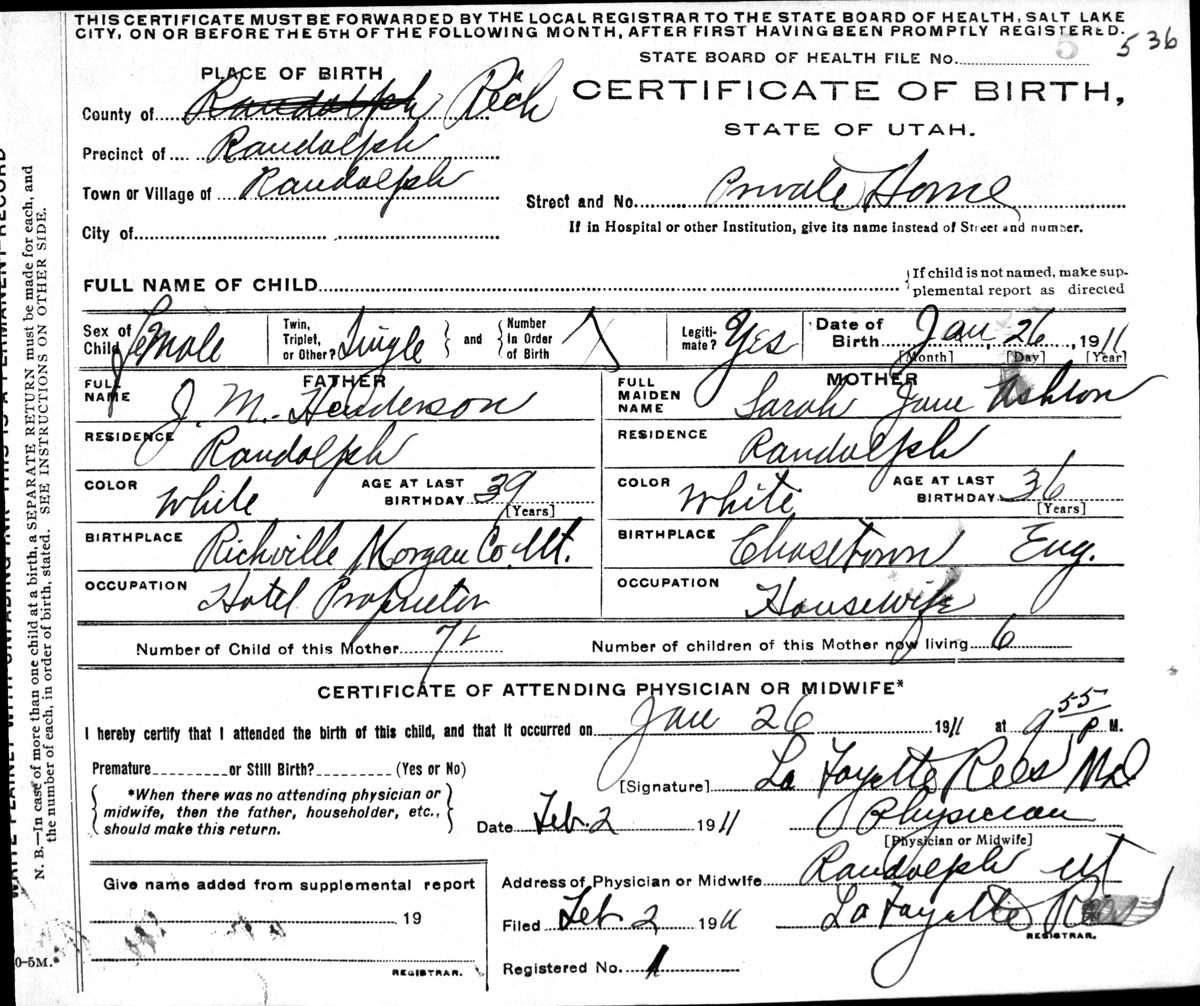 THIS CERTIFICATE MUST BE FORWARDED BY THE LOCAL REGISTRAR TO THE STATE BOARD OF HEALTH, SALT LAKE
CITY, ON OR BEFORE THE 5TH OF THE FOLLOWING MONTH, AFTER FIRST HAVING BEEN PROMPTLY REGISTERED.
5 536
STATE BOARD OF HEALTH FILE No.
PLACE OF BIRTH
County of Randolph Rich
CERTIFICATE OF BIRTH,
STATE OF UTAH.
Precinct of Randolph
Town or Village of Randolph
Street and No. Private Home
City of
If in Hospital or other Institution, give its name instead of Street and number.
FULL NAME OF CHILD
If child is not named, make sup-
plemental report as directed
Sex of Child Female
Twin, Triplet, or Other? Single
and
Number In Order of Birth 7
Legiti-mate? Yes
Date of Birth Jan 26, 1911
[Month] [Day] [Year]
FATHER
FULL NAME J. M. Henderson
RESIDENCE Randolph
COLOR White AGE AT LAST BIRTHDAY 39
[Years]
BIRTHPLACE Richville Morgan Co. Ut.
OCCUPATION Hotel Proprietor
MOTHER
FULL MAIDEN NAME Sarah Jane Ashton
RESIDENCE Randolph
COLOR White AGE AT LAST BIRTHDAY 36
[Years]
BIRTHPLACE Chasetown Eng.
OCCUPATION Housewife
Number of Child of this Mother 7
Number of children of this Mother now living 6
CERTIFICATE OF ATTENDING PHYSICIAN OR MIDWIFE*
I hereby certify that I attended the birth of this child, and that it occurred on Jan 26 1911 at 9 55 P M.
Premature or Still Birth? (Yes or No)
[Signature] La Fayette Rees MD
*When there was no attending physician or
midwife, then the father, householder, etc.,
should make this return.
Date Feb. 2 1911
Physician
[Physician or Midwife]
Give name added from supplemental report
19
REGISTRAR.
Address of Physician or Midwife Randolph Ut
Filed Feb 2 1911 La Fayette Rees
REGISTRAR.
Registered No. 1
N. B.—In case of more than one child at a birth, a SEPARATE RETURN must be made for each, and
the number of each, in order of birth, stated. SEE INSTRUCTIONS ON OTHER SIDE.
0-5M.